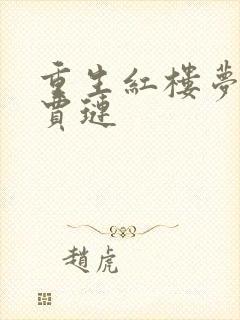 重生紅樓夢
賈璉
趙虎